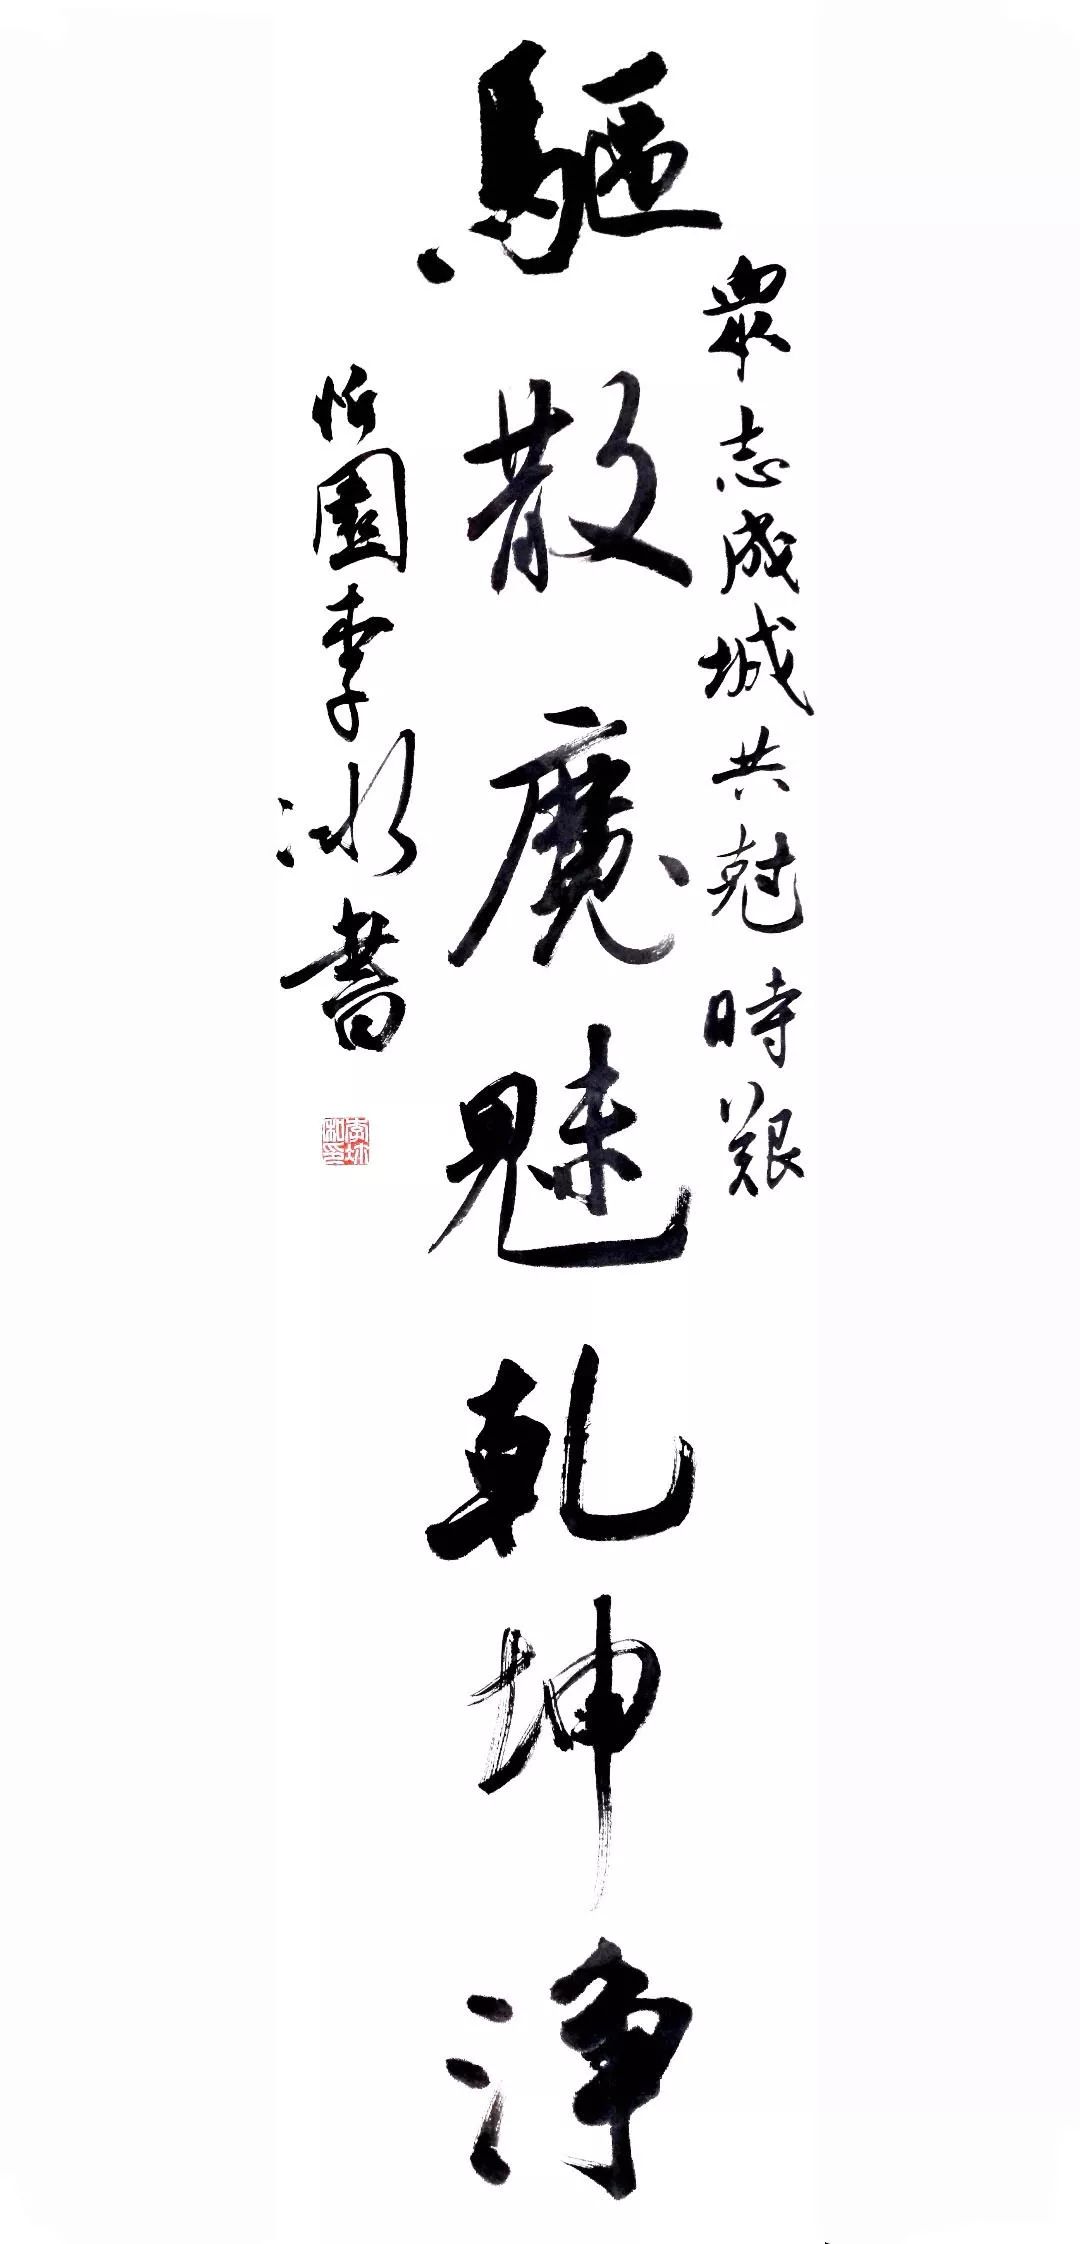 衆志成城共尅時艱
驅散魔魅乾坤淨
忻園李冰書